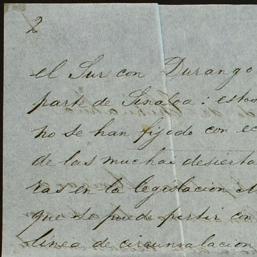 2
el Sur con Durango
parte de Sinaloa: esto
no se han fijado con
de las muchas desierta
vas en la legislacion
que no puede partir con
linea de circunvalacion